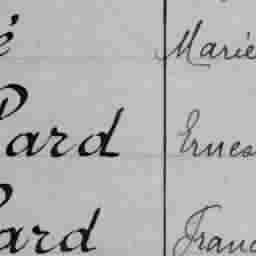 é Marie
Pard Ernes
ard Franc